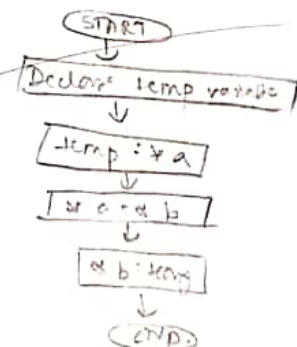 START
Declare temp variable
temp = * a
* a = * b
* b = temp
END.